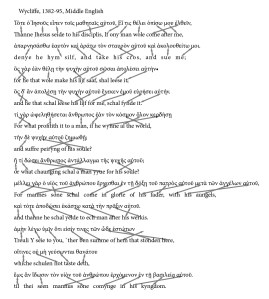 Wycliffe, 1382-95, Middle English
Τότε ὁ Ἰησοῦς εἶπεν τοῖς μαθηταῖς αὐτοῦ, Εἴ τις θέλει ὀπίσω μου ἐλθεῖν,
Thanne Jhesus seide to his disciplis, If ony man wole come after me,
ἀπαρνησάσθω ἑαυτὸν καὶ ἀράτω τὸν σταυρὸν αὐτοῦ καὶ ἀκολουθείτω μοι.
denye he hym silf, and take his cros, and sue me;
ὃς γὰρ ἐὰν θέλῃ τὴν ψυχὴν αὐτοῦ σῶσαι ἀπολέσει αὐτήν·
for he that wole make his lijf saaf, shal leese it;
ὃς δ᾽ ἂν ἀπολέσῃ τὴν ψυχὴν αὐτοῦ ἕνεκεν ἐμοῦ εὑρήσει αὐτήν.
and he that schal leese his lijf for me, schal fynde it.
τί γὰρ ὠφεληθήσεται ἄνθρωπος ἐὰν τὸν κόσμον ὅλον κερδήσῃ
For what profitith it to a man, if he wynne al the world,
τὴν δὲ ψυχὴν αὐτοῦ ζημιωθῇ;
and suffre peiryng of his soule?
ἢ τί δώσει ἄνθρωπος ἀντάλλαγμα τῆς ψυχῆς αὐτοῦ;
or what chaunging schal a man yyue for his soule?
μέλλει γὰρ ὁ υἱὸς τοῦ ἀνθρώπου ἔρχεσθαι ἐν τῇ δόξῃ τοῦ πατρὸς αὐτοῦ μετὰ τῶν ἀγγέλων αὐτοῦ,
For mannes sone schal come in glorie of his fader, with his aungels,
καὶ τότε ἀποδώσει ἑκάστῳ κατὰ τὴν πρᾶξιν αὐτοῦ.
and thanne he schal yelde to ech man after his werkis.
ἀμὴν λέγω ὑμῖν ὅτι εἰσίν τινες τῶν ὧδε ἑστώτων
Treuli Y seie to you, ther ben summe of hem that stonden here,
οἵτινες οὐ μὴ γεύσωνται θανάτου
whiche schulen not taste deth,
ἕως ἂν ἴδωσιν τὸν υἱὸν τοῦ ἀνθρώπου ἐρχόμενον ἐν τῇ βασιλείᾳ αὐτοῦ.
til thei seen mannus sone comynge in his kyngdom.